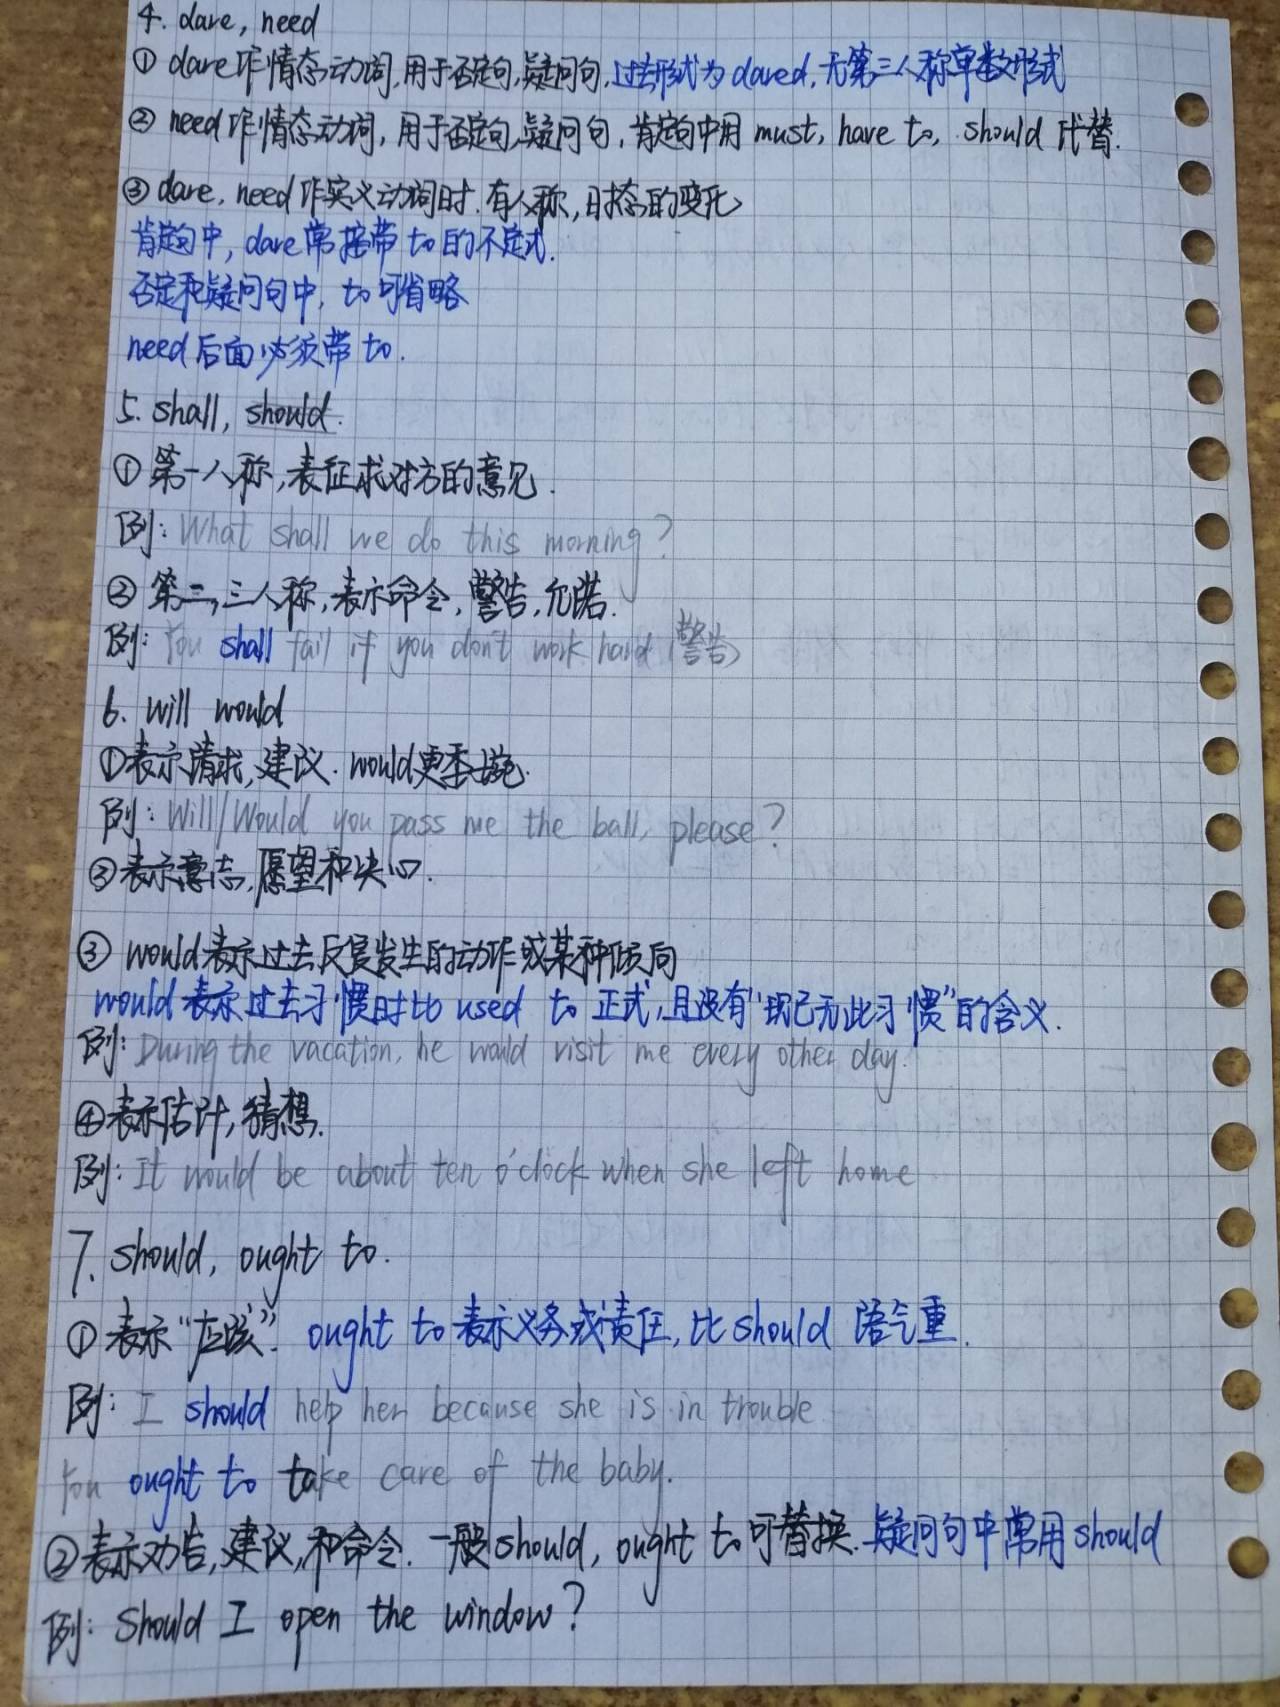 4. dare, need
① dare作情态动词,用于否定句,疑问句,过去形式为dared,无第三人称单数形式
② need作情态动词,用于否定句,疑问句,肯定句中用 must, have to, should 代替.
③ dare, need作实义动词时.有人称,时态的变化
肯定句中, dare常接带 to 的不定式.
否定和疑问句中, to 可省略
need 后面必须带 to.
5. shall, should.
① 第一人称,表征求对方的意见.
例: What shall we do this morning?
② 第二,三人称,表示命令,警告,允诺.
例: You shall fail if you don't work hard (警告)
6. will would
①表示请求,建议. would更委婉.
例: Will/Would you pass me the ball, please?
②表示意志,愿望和决心.
③ would表示过去反复发生的动作或某种倾向
would 表示过去习惯时比 used to 正式,且没有"现已无此习惯"的含义.
例: During the vacation, he would visit me every other day.
④表示估计,猜想.
例: It would be about ten o'clock when she left home
7. should, ought to.
① 表示"应该". ought to 表示义务或责任,比 should 语气重.
例: I should help her because she is in trouble
You ought to take care of the baby.
②表示劝告,建议,和命令. 一般should, ought to可替换.疑问句中常用should
例: Should I open the window?